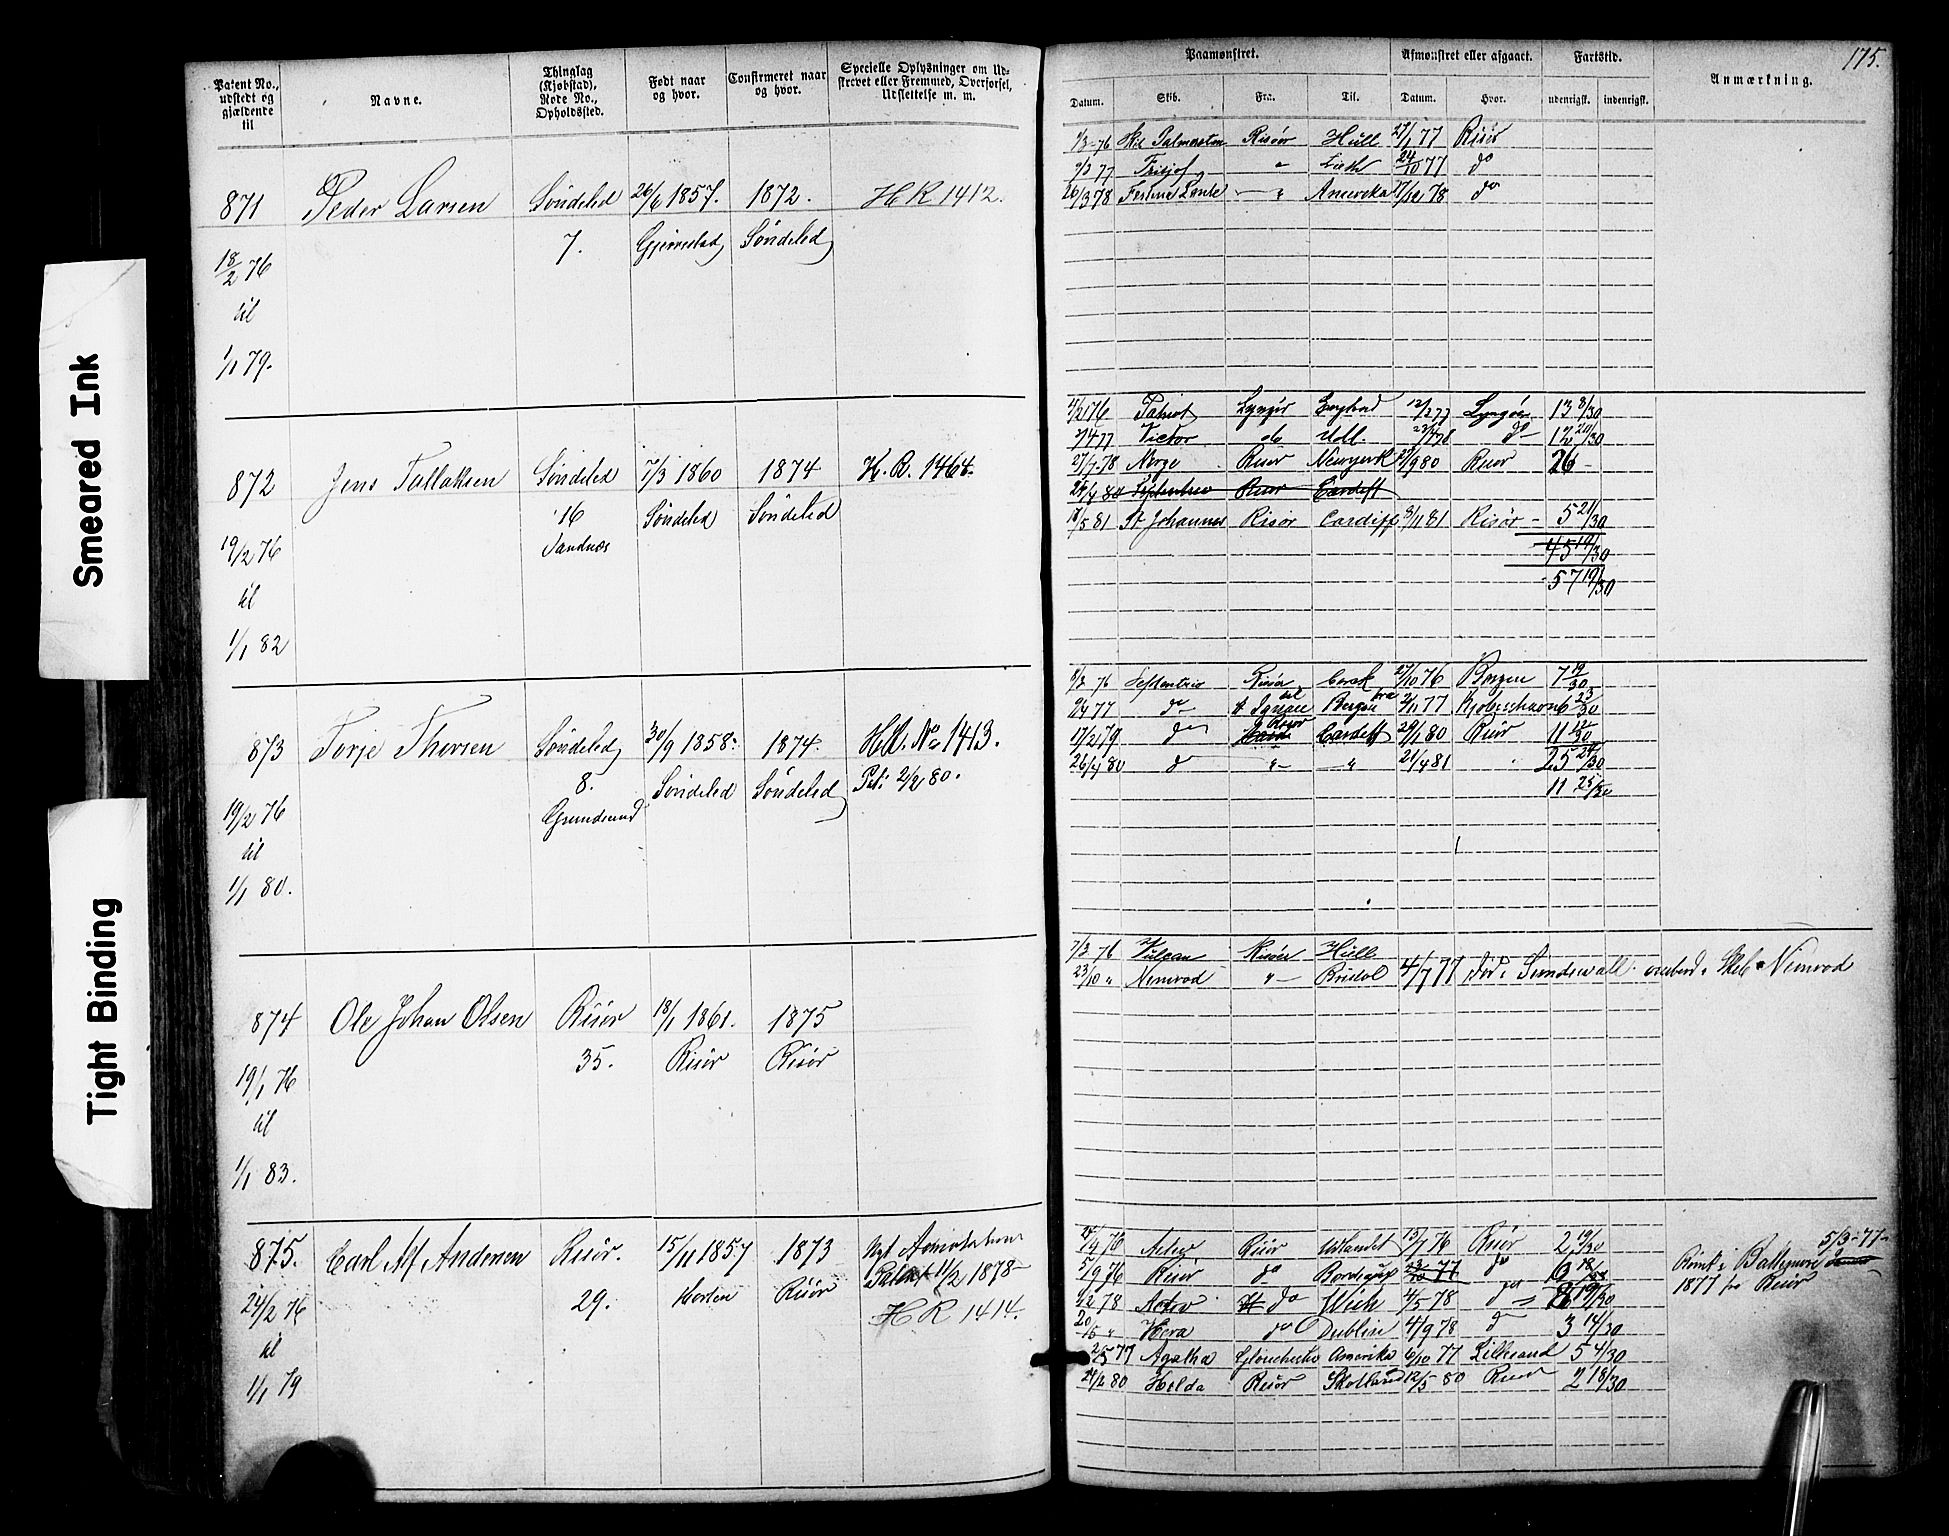 175.
Patent No., udstedt og gjældende til
Navne.
Thinglag (Kjøbstad), Rode No., Opholdssted.
Født naar og hvor.
Confirmeret naar og hvor.
Specielle Oplysninger om Udskrevet eller Fremmed, Overførsel, Udslettelse m. m.
Paamønstret.
Afmønstret eller afgaaet.
Fartstid.
Anmærkning.
Datum. Skib. Fra. Til. Datum. Hvor. udenrigsk. indenrigsk.
871 Peder Larsen Søndeled 26/6 1857. 1872. H R 1412.
7. Gjerrestad Søndeled
18/2 76
til
1/1 79.
Risøer Hull 27/1 77 Risør
Frisjof " Leith 24/10 77 do
26/3 78 " Amerika 7/12 78 do
872 Jens Tallaksen Søndeled 7/3 1860 1874 H. R. 1464.
16 Søndeled Søndeled
Sandnæs
19/2 76
til
1/1 82
4/2 76 Patriot Lyngør 12/2 77 Lyngøer 13 8/30
2/4 77 Victor do Udl. do 12 20/30
27/7 78 Norge Risør Newyork 29/9 80 Risør 26 -
24/4 80 Septentrio Risør Cardiff
18/5 81 St Johannes Risør Cardiff 8/11 81 Risør - 5 21/30
45 19/30
57 19/30
873 Terje Thorsen Søndeled 30/9 1858. 1874. HR. No 1413.
8. Søndeled Søndeled Pat. 2/2 80.
Grundsund
19/2 76
til
1/1 80.
8/3 76 Septentrio Risør Corck 27/10 76 Bergen 7 19/30
2/4 77 do Bergen 2/11 77 Kjøbenhavn 6 23/30
17/2 79 do Risør Cardiff 29/1 80 Risør 11 12/30
26/4 80 do " " 21/4 81 25 24/30
11 25/30
874 Ole Johan Olsen Risør 18/1 1861. 1875
35. Risør Risør
19/1 76
til
1/1 83.
7/3 76 Vulcan Risøer Hull
23/10 " Nemrod " Bristol 4/7 77 død i Sundswall ombord i Skib Nimrod
875. Carl Alf Andersen Risør. 15/11 1857 1873 Nyt Annotations
29. Horten Risør Patent 11/2 1878
H R 1414.
24/2 76
til
1/1 79
Activ Risør Udlandet 15/7 76 Risør 2 19/30
5/9 76 Risør do 77 do
2/2 78 Activ do Wich 4/5 78 do
20/5 " Hera do Dublin 4/9 78 do 3 14/30
2/5 77 Agatha Glouchester Amerika 6/10 77 Lillesand 5 4/30
24/2 80 Holda Risør Skotland 12/5 80 Risør 2 18/30
5/3-77-
Rømt i Baltimore
1877 fra Risør
Smeared Ink
Tight Binding